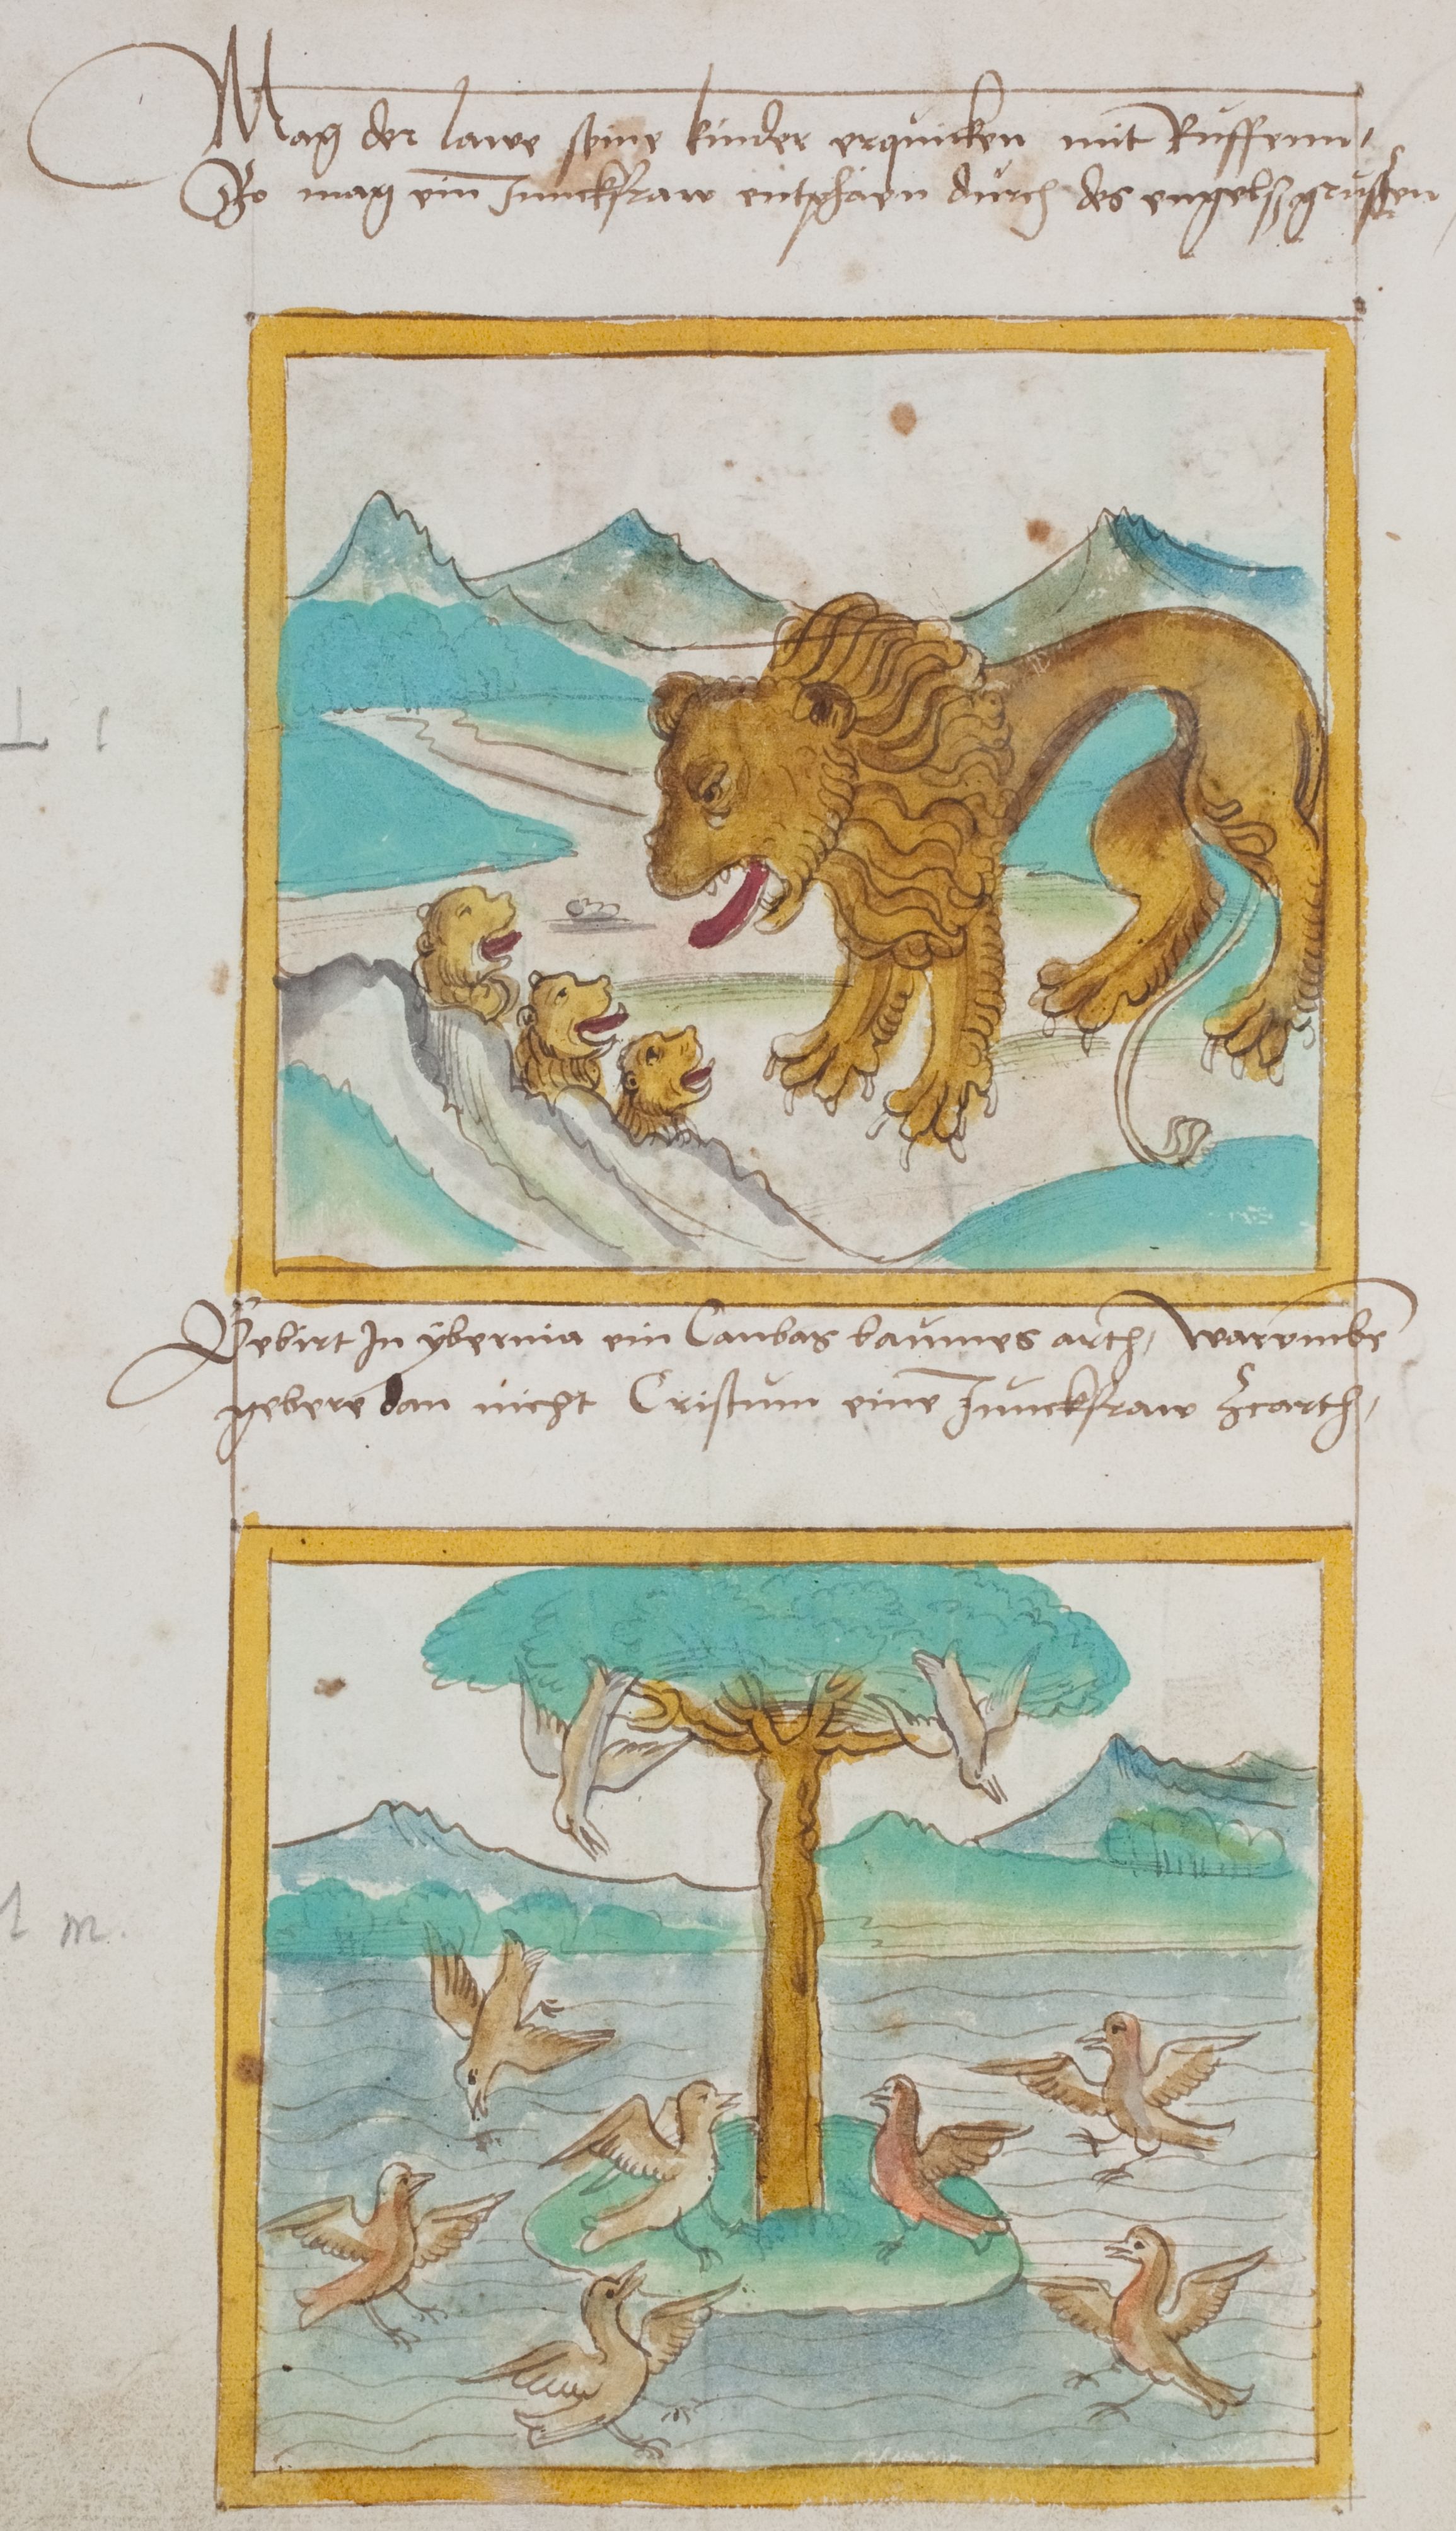 Mag der lawe seine kinder erquicken mit Ruffenn,
So mag ein Junckfraw entphaen durch des engelß grussen
L l
Gebirt In ybernia ein Canbas baumes arth, Warumbe
gebere dan nicht Cristum eine Junckfraw zcarth,
m.